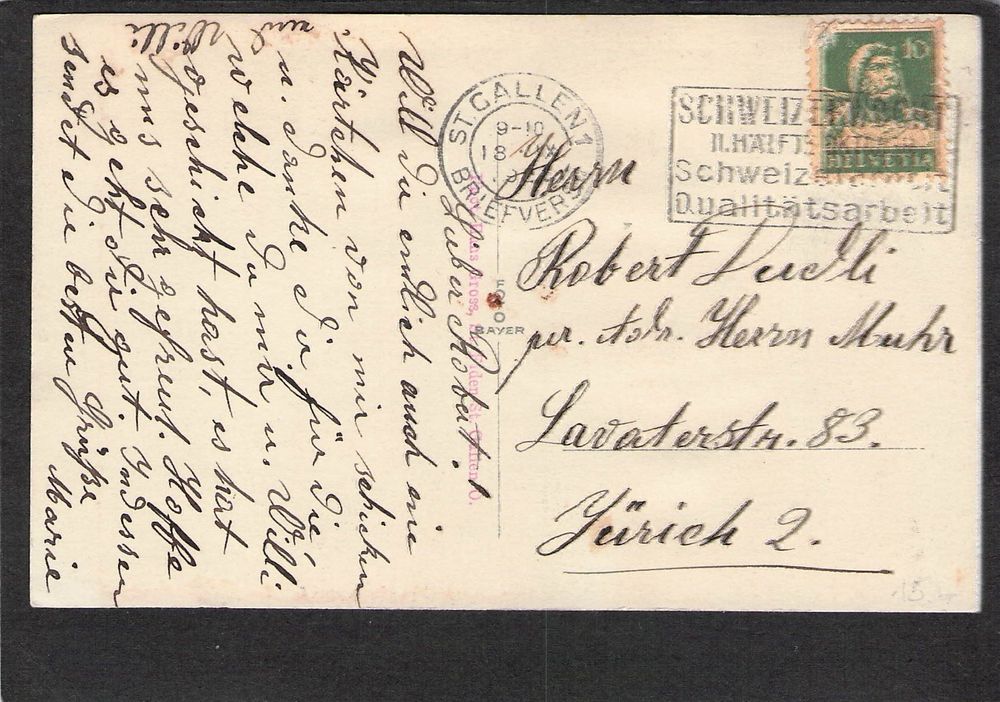 Lieber Robert!
Will Dir endlich auch ein
Kärtchen von mir schicken
u. danke dir für die
welche du mir u. Willi
geschickt hast, es hat
uns sehr gefreut. Hoffe
es geht dir gut. Indessen
sendet die besten Grüße
Marie
und Willi
ST. GALLEN 1
9-10
18
BRIEFVERS
SCHWEIZER
II. HÄLFTE
Schweizer
Qualitätsarbeit
10
HELVETIA
Gross, St. Gallen O.
FOTO
BAYER
Herrn
Robert
pr. Adr. Herrn Muhr
Lavaterstr. 83.
Zürich 2.
15.-